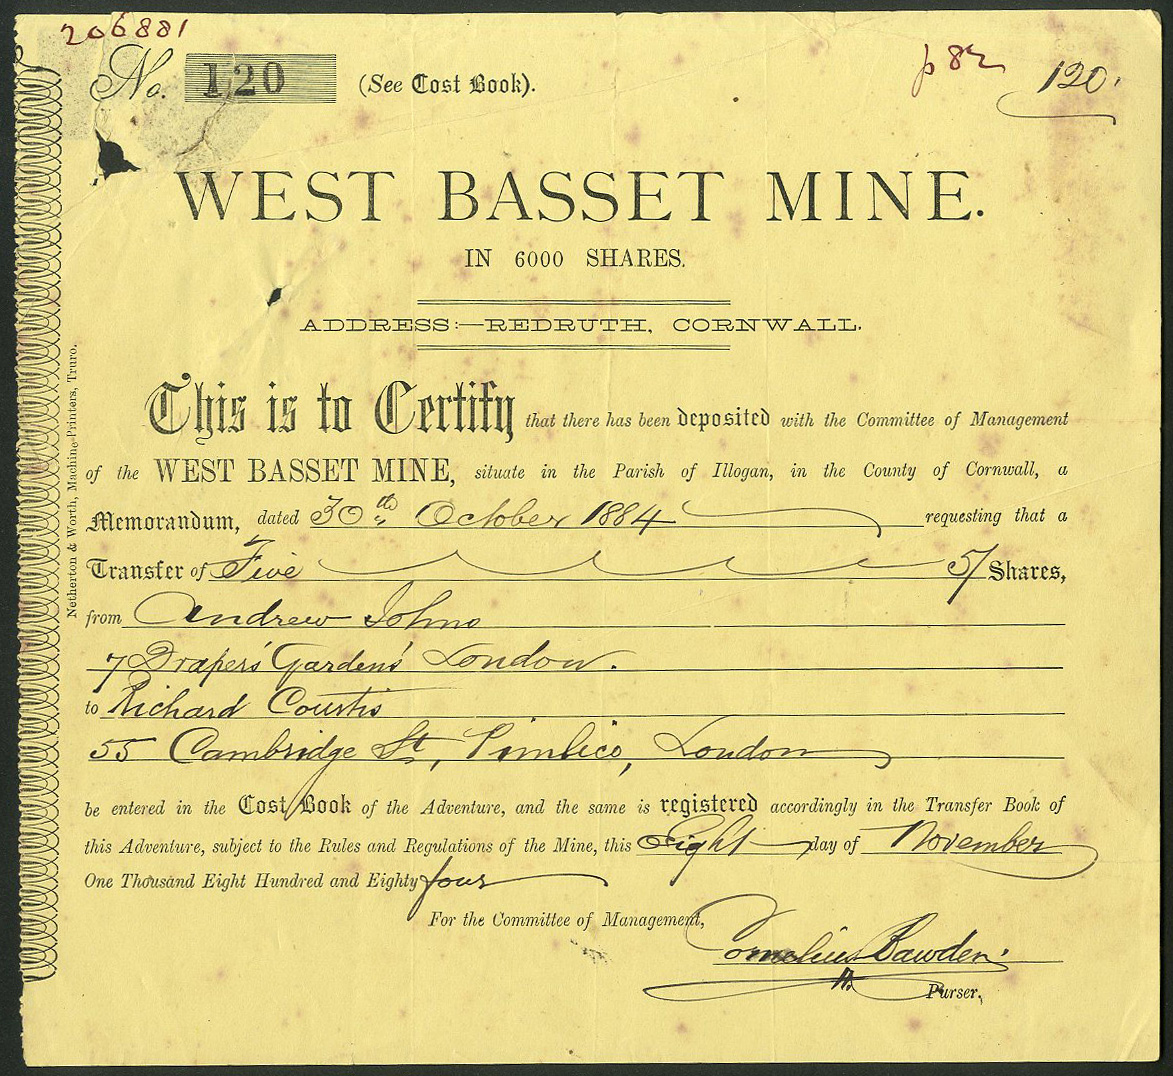 206881
No. 120 (See Cost Book). p 82 120.
WEST BASSET MINE.
IN 6000 SHARES.
ADDRESS:—REDRUTH, CORNWALL.
This is to Certify that there has been deposited with the Committee of Management
of the WEST BASSET MINE, situate in the Parish of Illogan, in the County of Cornwall, a
Memorandum, dated 30th October 1884 requesting that a
Transfer of Five 5/ Shares,
from Andrew Johns
7 Drapers' Gardens' London.
to Richard Courtis
55 Cambridge St, Pimlico, London
be entered in the Cost Book of the Adventure, and the same is registered accordingly in the Transfer Book of
this Adventure, subject to the Rules and Regulations of the Mine, this Eight day of November
One Thousand Eight Hundred and Eighty four
For the Committee of Management,
Cornelius Bawden.
Purser,
Netherton & Worth, Machine-Printers, Truro.